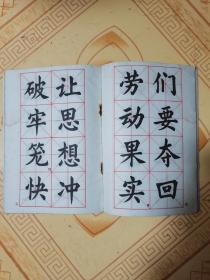 们要夺回
劳动果实
让思想冲
破牢笼快